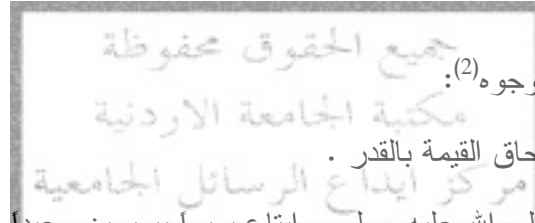 جميع الحقوق محفوظة
وجوه(2):
مكتبة الجامعة الاردنية
القيمة بالقدر .
مركز ايداع الرسائل الجامعية